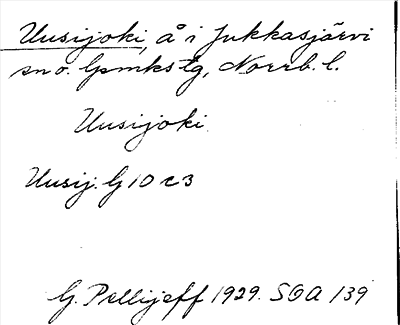 Uusijoki, å i Jukkasjärvi
sn o. lpmks tg, Norrb. l.
Uusijoki.
Uusij. G 10 c 3
G. Pellijeff 1929. SOA 139